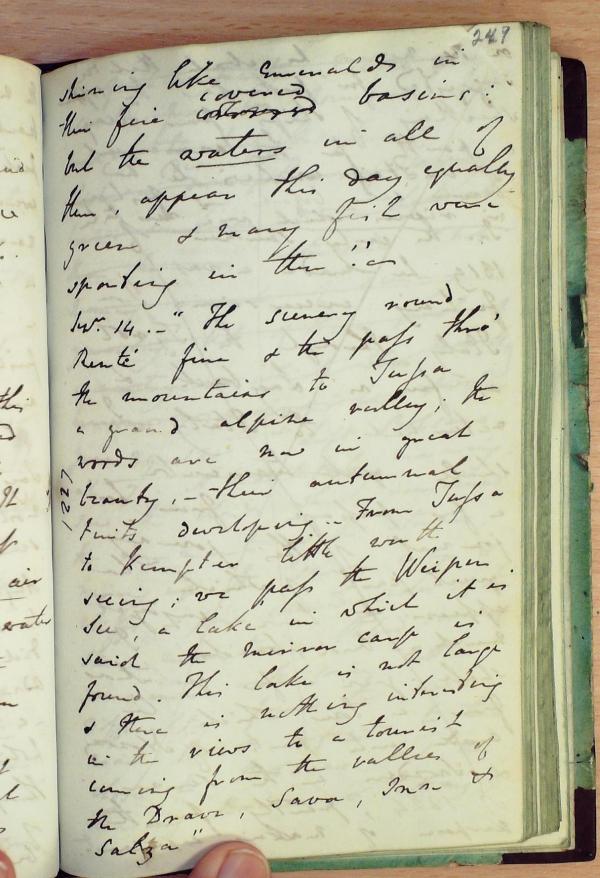 249
shining like Emeralds in
their fine covered basins:
but the waters in all of
them, appear this day equally
green & many fish were
sporting in them
14. — " The scenery round
Renté fine & the pass thro'
the mountains to Tussa
a grand alpine valley; the
woods are now in great
beauty, — their autumnal
tints developing. — From Tussa
to Kempten little worth
seeing; we pass the Weipen
See, a lake in which it is
said the mirror carp is
found. This lake is not large
& there is nothing interesting
in the views to a tourist
coming from the vallies of
the Drave, Sava, Inn &
Salza"
1827